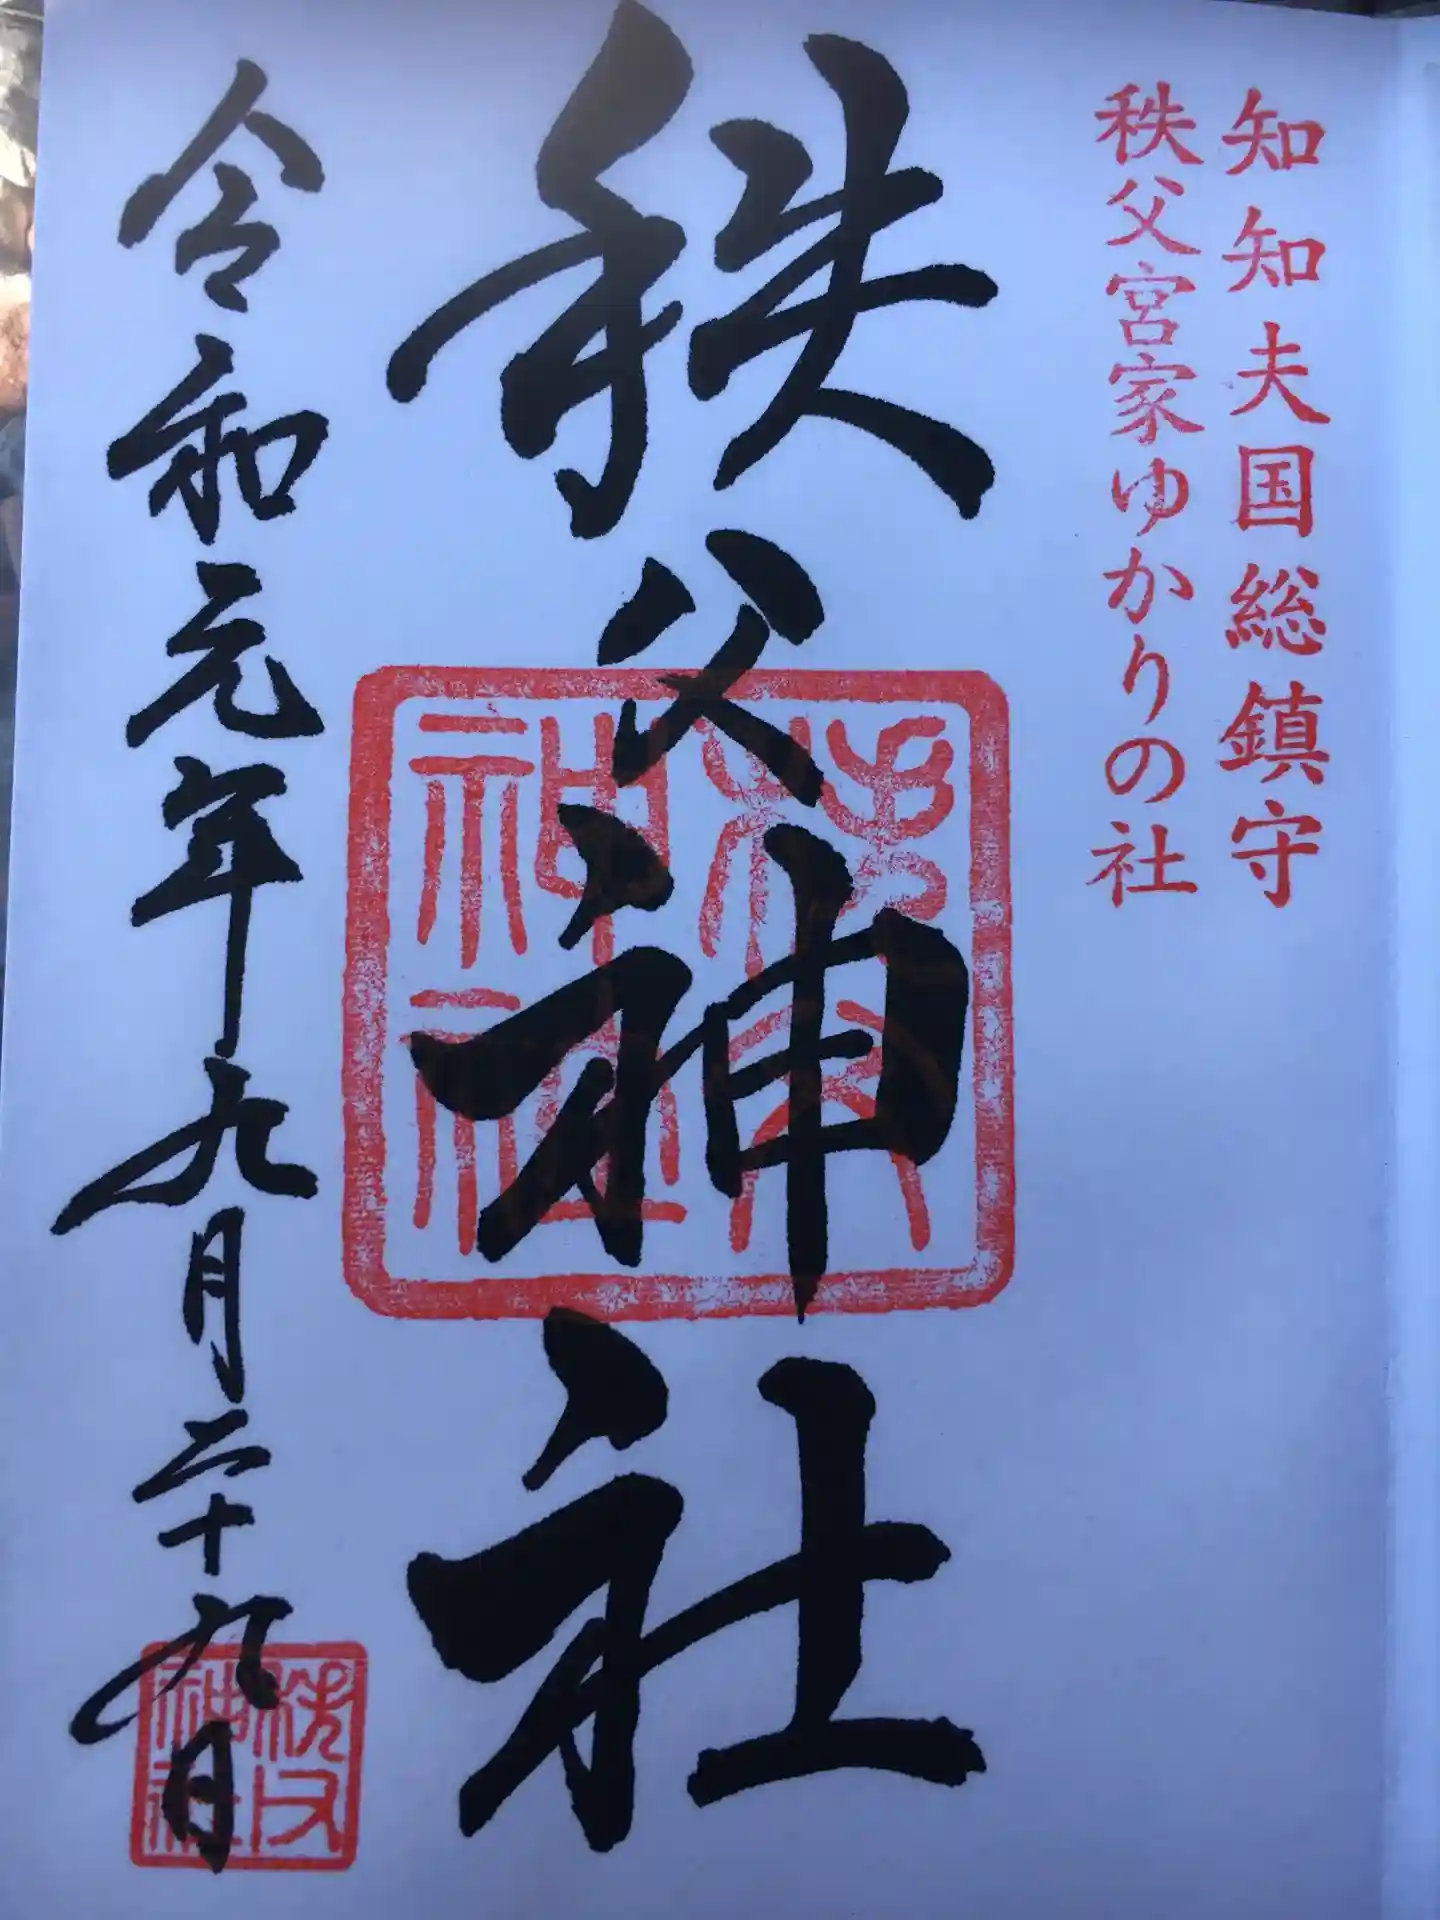 知知夫国総鎮守
秩父宮家ゆかりの社
秩父神社
秩父
神社
令和元年九月二十九日
秩父
神社